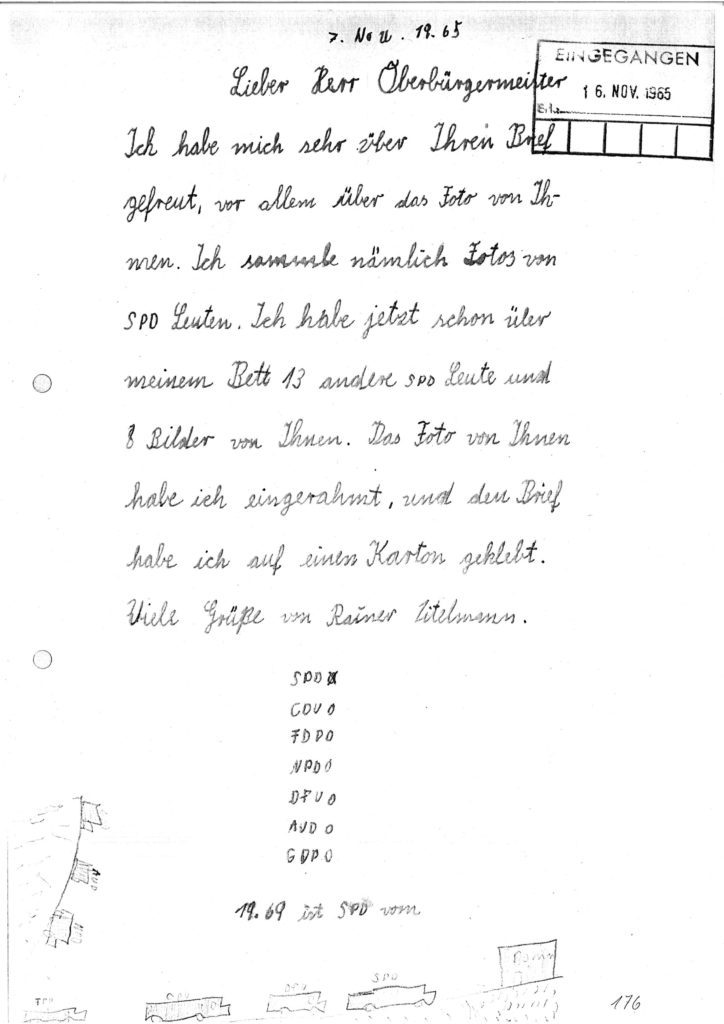 7. Nov. 19.65
EINGEGANGEN
16. NOV. 1965
Lieber Herr Oberbürgermeister
Ich habe mich sehr über Ihren Brief
gefreut, vor allem über das Foto von Ih-
nen. Ich sammle nämlich Fotos von
SPD Leuten. Ich habe jetzt schon über
meinem Bett 13 andere SPD Leute und
8 Bilder von Ihnen. Das Foto von Ihnen
habe ich eingerahmt, und den Brief
habe ich auf einen Karton geklebt.
Viele Grüße von Rainer Zitelmann.
SPD X
CDU O
FDP O
NPD O
DFU O
AUD O
GDP O
19.69 ist SPD vorn
AUD
SPD
Bonn
176